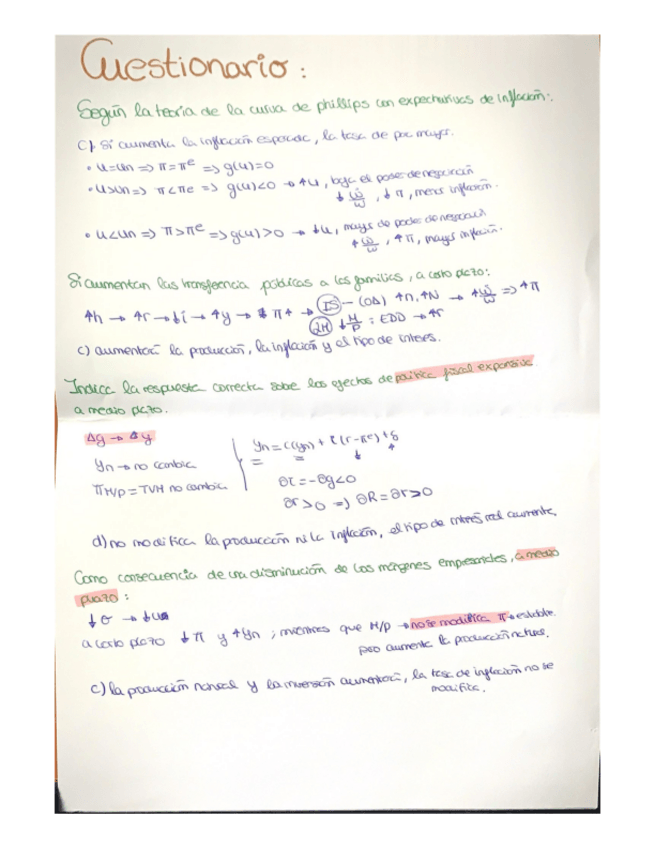 Cuestionario:
Según la teoría de la curva de phillips con expectativas de inflación:
c) Si aumenta la inflación esperada, la tasa de par mayor.
• u=un => π=πe => g(u)=0
• u>un => π<πe => g(u)<0 → ↑u, baja el poder de negociación
↓ẇ/w, ↓π, menor inflación.
• u<un => π>πe => g(u)>0 → ↓u, mayor de poder de negociación
↑ẇ/w, ↑π, mayor inflación.
Si aumentan las transferencia públicas a las familias, a corto plazo:
↑h → ↑r → ↓i → ↑y → π↑ → (IS) – (OA) ↑n, ↑N → ↑ẇ/w => ↑π
(LM) ↓M/P : EDD → ↑r
c) aumentará la producción, la inflación y el tipo de interés.
Indica la respuesta correcta sobre los efectos de política fiscal expansiva
a medio plazo.
Δg → Δy
yn → no cambia
πM/P = TVM no cambia
yn = c(yn) + i(r-πe) + g
∂i = -∂g<0
∂r>0 => ∂R=∂r>0
d) no modifica la producción ni la inflación, el tipo de interés real aumenta.
Como consecuencia de una disminución de los márgenes empresariales, a medio
plazo:
↓σ → ↓un
a corto plazo ↓π y ↑yn ; mientras que M/p → no se modifica π → estable
pero aumenta la producción natural.
c) la producción natural y la inversión aumentará, la tasa de inflación no se
modifica.